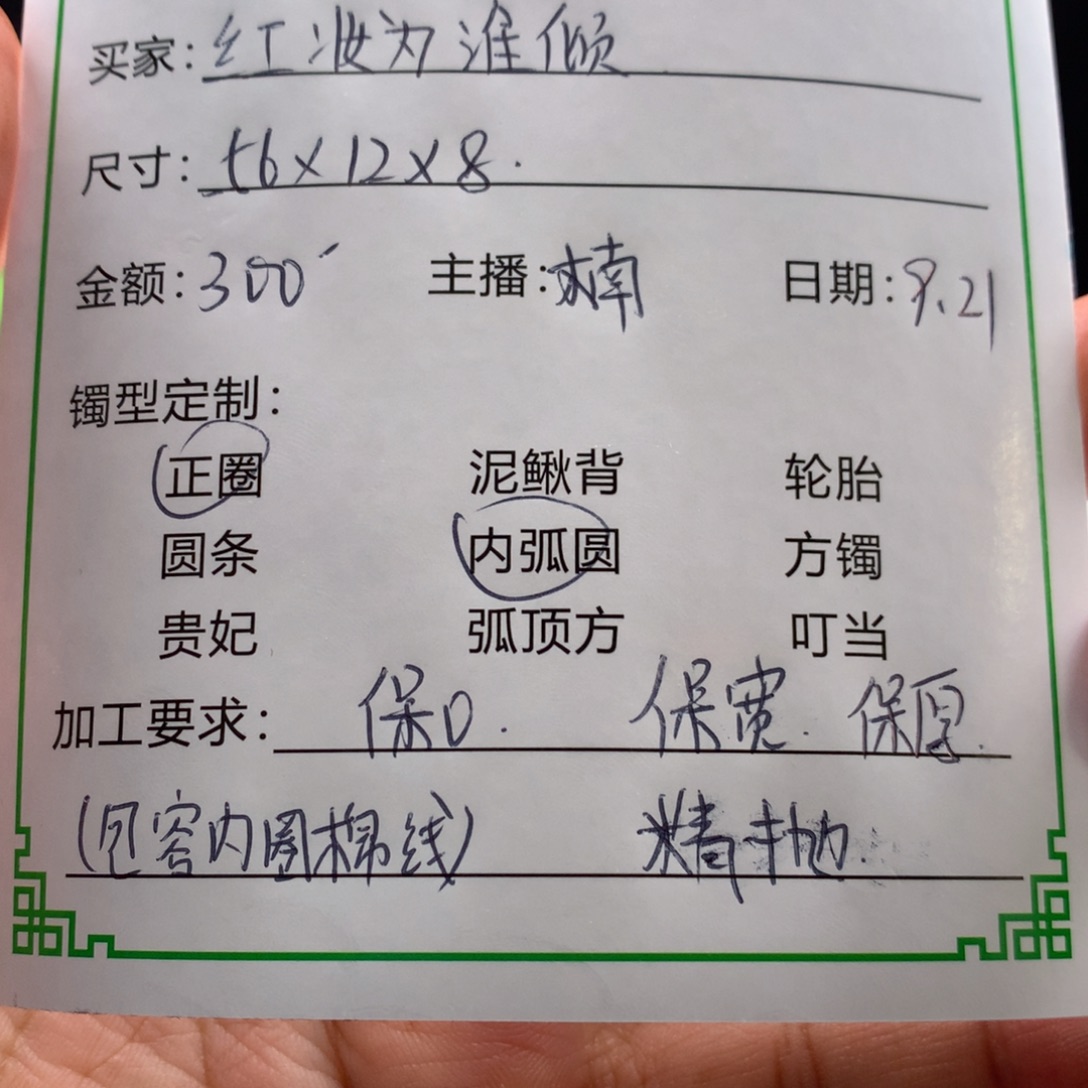 买家: 红妆为淮倾
尺寸: 56×12×8.
金额: 300 主播: 楠 日期: 9.21
镯型定制:
正圈 泥鳅背 轮胎
圆条 内弧圆 方镯
贵妃 弧顶方 叮当
加工要求: 保口. 保宽. 保厚.
(包容内圈棉线) 精抛.